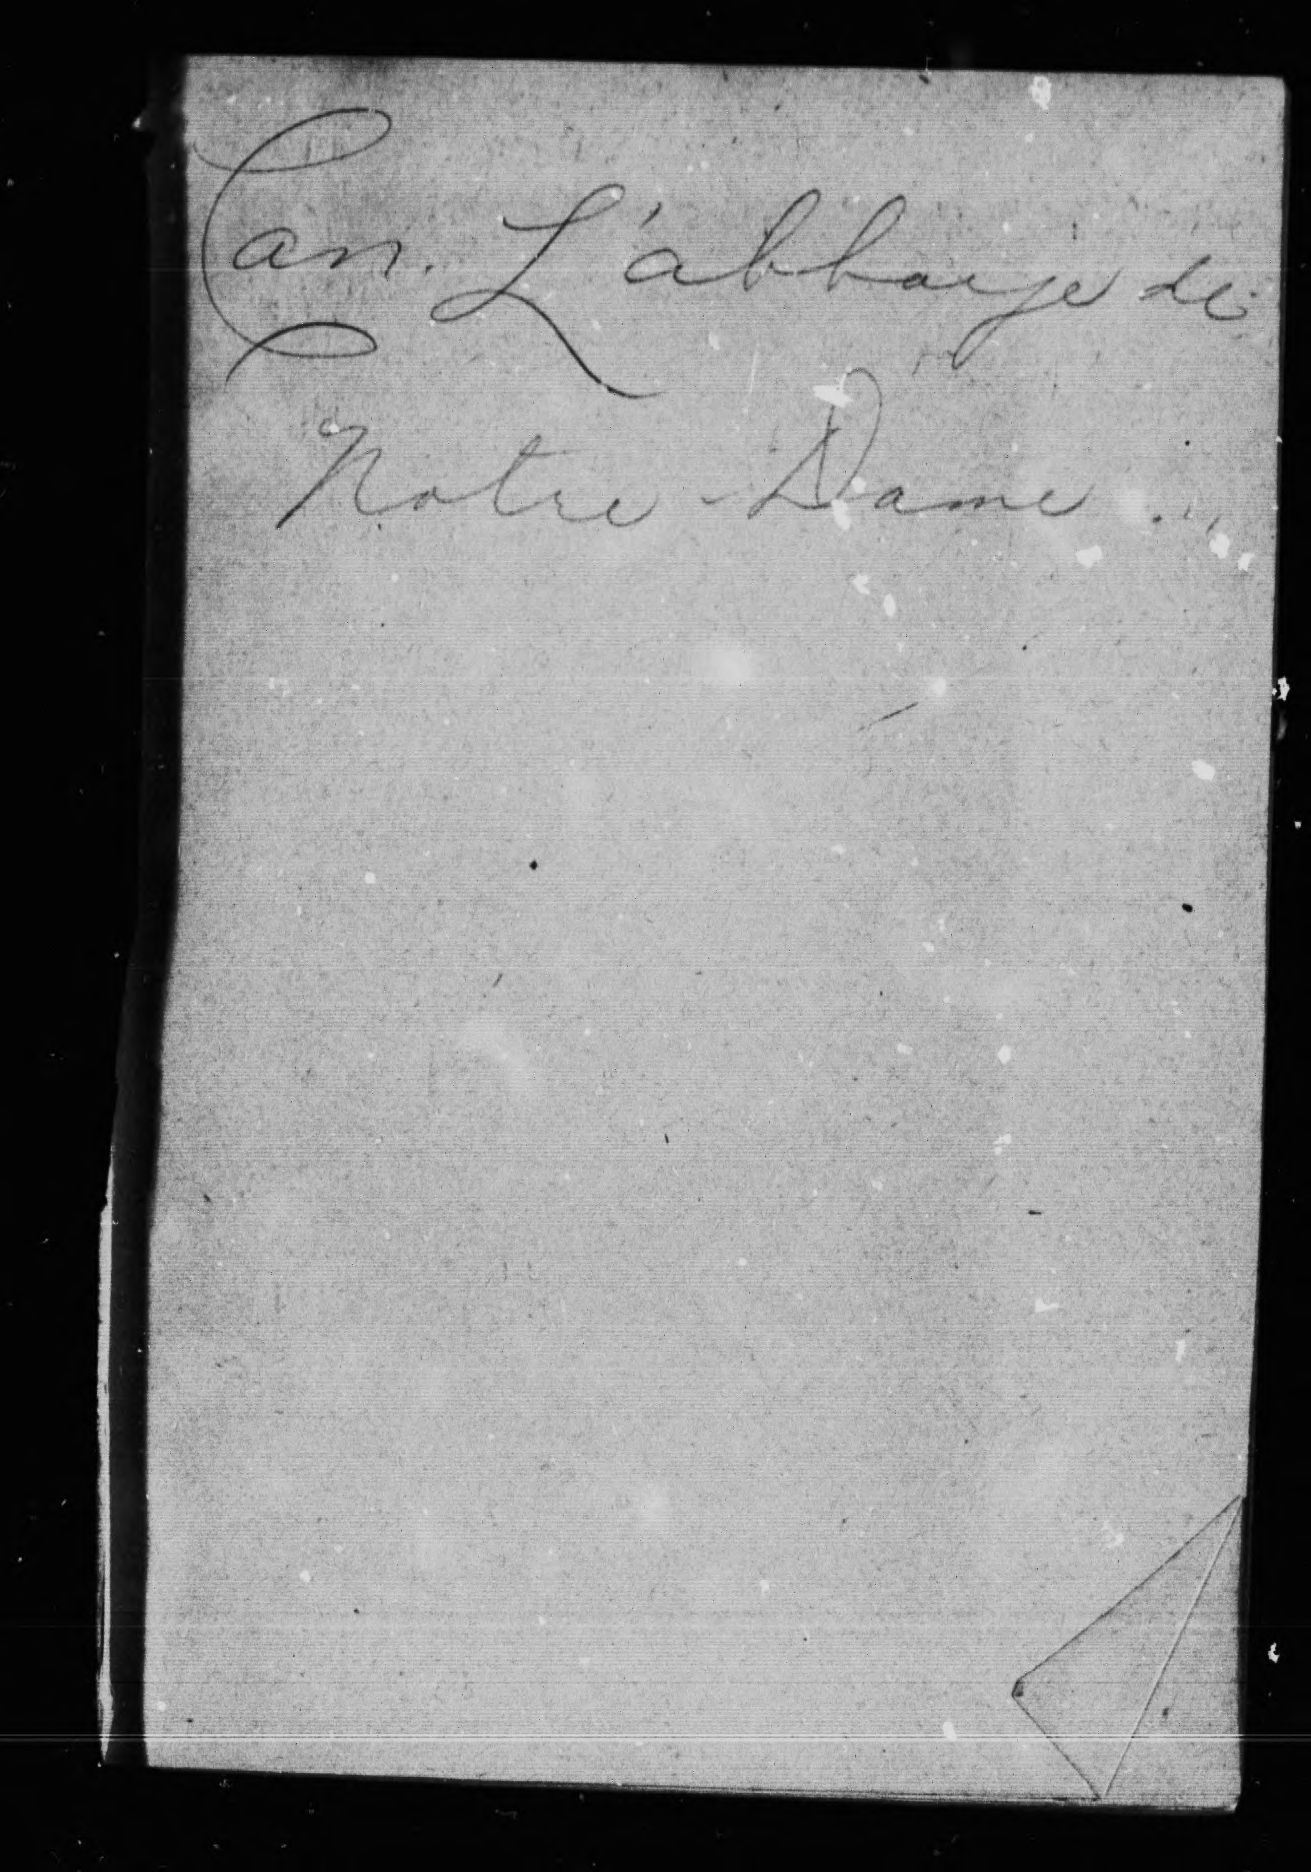 Can. L'abbaye de
Notre-Dame ...